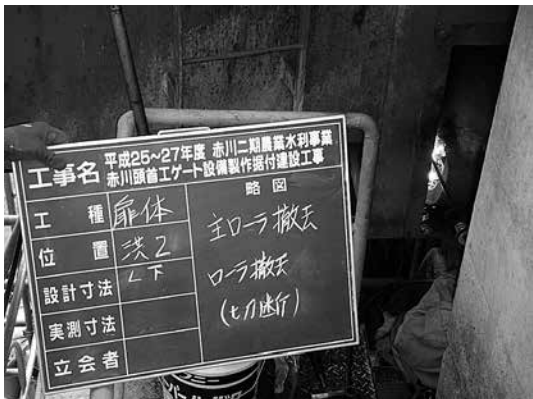 工事名 平成25~27年度 赤川二期農業水利事業
赤川頭首工ゲート設備製作据付建設工事
工種 扉体
略図
位置 洪2
主ローラ撤去
設計寸法 ∠下
ローラ撤去
実測寸法
(切断)
立会者